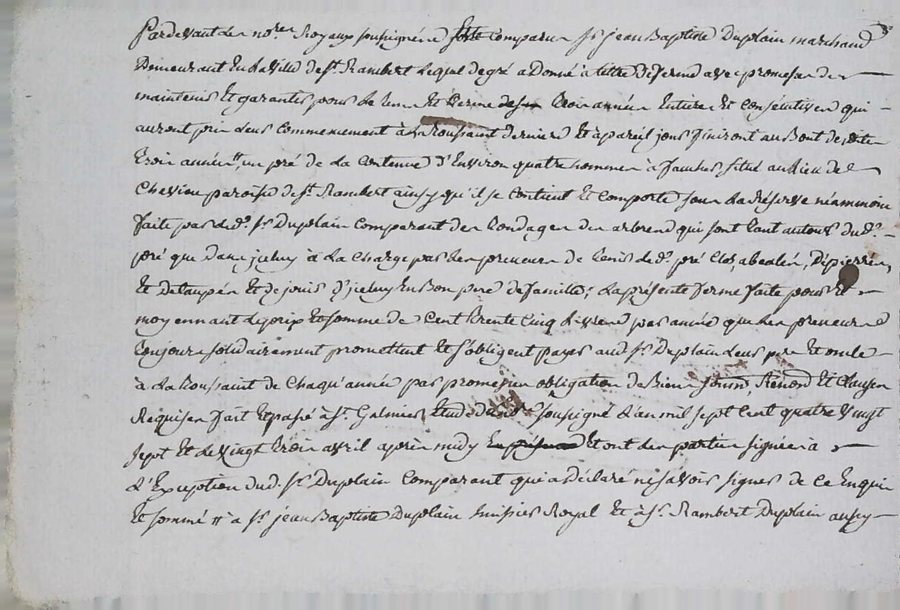 Pardevant les no.res Royaux soussignés est comparu Sr jean Baptiste Duplain marchand
Demeurant En la ville de St. Rambert Lequel de gré a Donné à titre de ferme avec promesse de
maintenir Et garantir pour Le tems Et terme de trois années Entieres Et consécutives qui
auront pris leur commencement à la Toussaint derniere Et à pareil jour finiront au Bout desdites
trois années, un pré de La Contenue D'Environ quatre hommes à faucher, situé au Lieu de
Chevieu paroisse de St. Rambert ainsy qu'il se contient Et comporte sous La Réserve néammoins
faite par led. Sr. Duplain Comparant des Eondages des arbres qui sont tant autour dud.
pré que dans jceluy à La Charge par Les preneurs de tenir led. pré Clos,
Et de jouir d'jceluy En Bon pere de famille; La présente ferme faite pour Et
moyennant Le prix Et somme de Cent trente Cinq Livres par année que Les preneurs
Conjours solidairement promettent Et s'obligent payer aud. Sr. Duplain Leur pere Et oncle
à La Toussaint de Chaqu'année par promesses obligation de Biens soumi, Renon Et Clauses
Requises fait Et passé à St. Galmier, Etude de soussigné L'an mil sept Cent quatre Vingt
sept Et Le Vingt trois avril après midy Et ont Les parties signé à
L'Exception dud. Sr. Duplain Comparant qui a déclaré ne savoir signer de ce Enquis
Et sommé à Sr. jean Baptiste Duplain huissier Royal Et à St. Rambert Duplain aussy